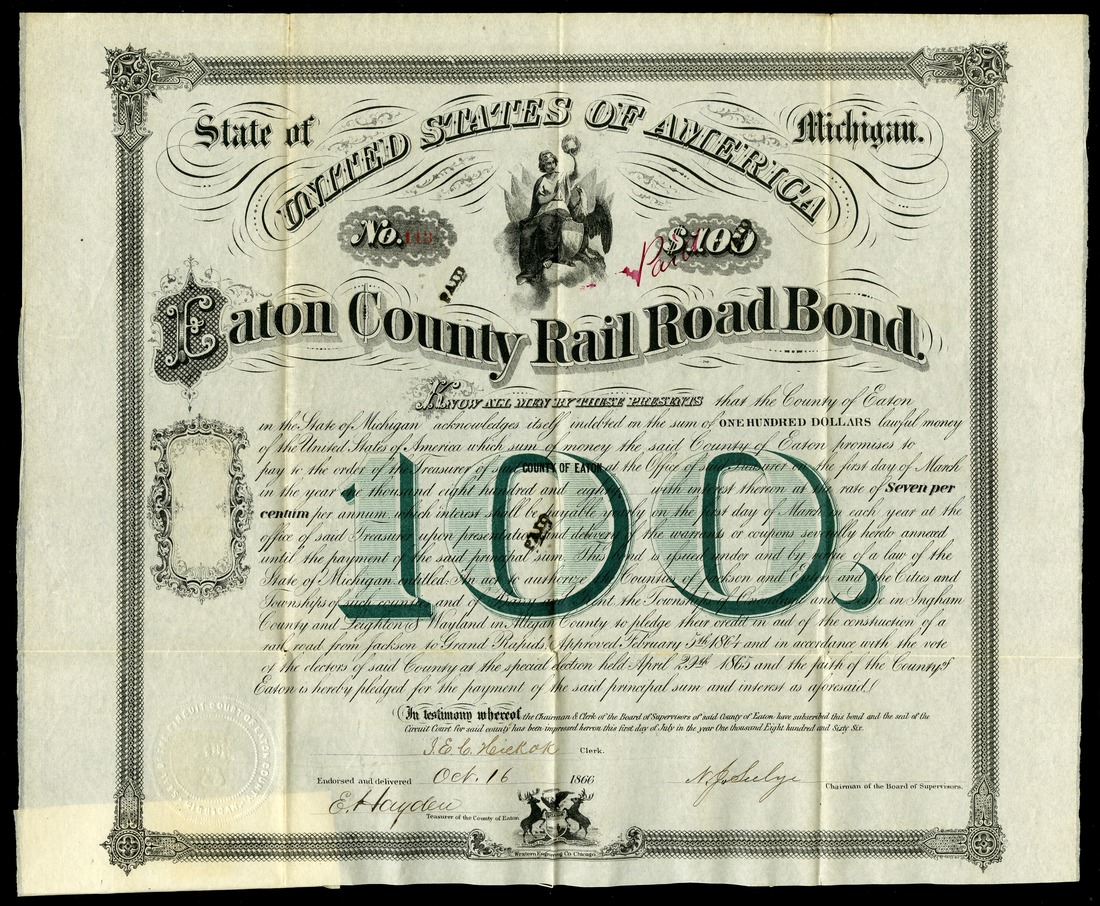 State of
Michigan.
UNITED STATES OF AMERICA
No.
$100
Paid
PAID
Eaton County Rail Road Bond.
KNOW ALL MEN BY THESE PRESENTS that the County of Eaton
in the State of Michigan acknowledges itself indebted in the sum of ONE HUNDRED DOLLARS lawful money
of the United States of America which sum of money the said County of Eaton promises to
pay to the order of the Treasurer of said COUNTY OF EATON at the Office of said Treasurer on the first day of March
in the year one thousand eight hundred and eighty with interest thereon at the rate of Seven per
centum per annum which interest shall be payable yearly on the first day of March in each year at the
office of said Treasurer upon presentation and delivery of the warrants or coupons severally hereto annexed
until the payment of the said principal sum. This bond is issued under and by virtue of a law of the
State of Michigan entitled An act to authorize the Counties of Jackson and Eaton and the Cities and
Townships of such county and of the Townships of and Leslie in Ingham
County and Leighton & Wayland in Allegan County to pledge their credit in aid of the construction of a
rail road from Jackson to Grand Rapids. Approved February 5th 1864 and in accordance with the vote
of the electors of said County at the special election held April 29th 1865 and the faith of the County of
Eaton is hereby pledged for the payment of the said principal sum and interest as aforesaid.
100.
PAID
In testimony whereof the Chairman & Clerk of the Board of Supervisors of said County of Eaton have subscribed this bond and the seal of the
Circuit Court for said county has been impressed hereon this first day of July in the year One thousand Eight hundred and Sixty Six
Clerk.
Endorsed and delivered Oct. 16 1866
Chairman of the Board of Supervisors.
E. Hayden
Treasurer of the County of Eaton.
Western Engraving Co. Chicago.